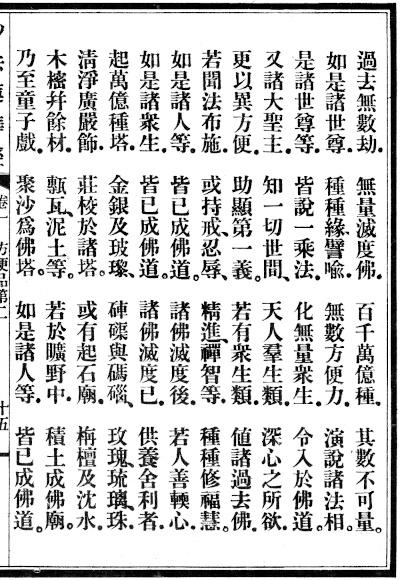 過去無數劫．無量滅度佛．百千萬億種．其數不可量。
如是諸世尊．種種緣譬喻．無數方便力．演說諸法相。
是諸世尊等．皆說一乘法．化無量衆生．令入於佛道。
又諸大聖主．知一切世間、天人羣生類．深心之所欲．
更以異方便．助顯第一義。若有衆生類．値諸過去佛．
若聞法布施．或持戒、忍辱、精進、禪智等．種種修福慧。
如是諸人等．皆已成佛道。諸佛滅度後．若人善輭心．
如是諸衆生．皆已成佛道。諸佛滅度已．供養舍利者．
起萬億種塔．金銀及玻瓈、硨磲與碼碯、玫瑰、琉璃、珠．
清淨廣嚴飾．莊校於諸塔。或有起石廟．栴檀及沈水．
木櫁幷餘材．甎瓦、泥土等。若於曠野中．積土成佛廟。
乃至童子戲．聚沙爲佛塔。如是諸人等．皆已成佛道。
卷一 方便品第二 十五